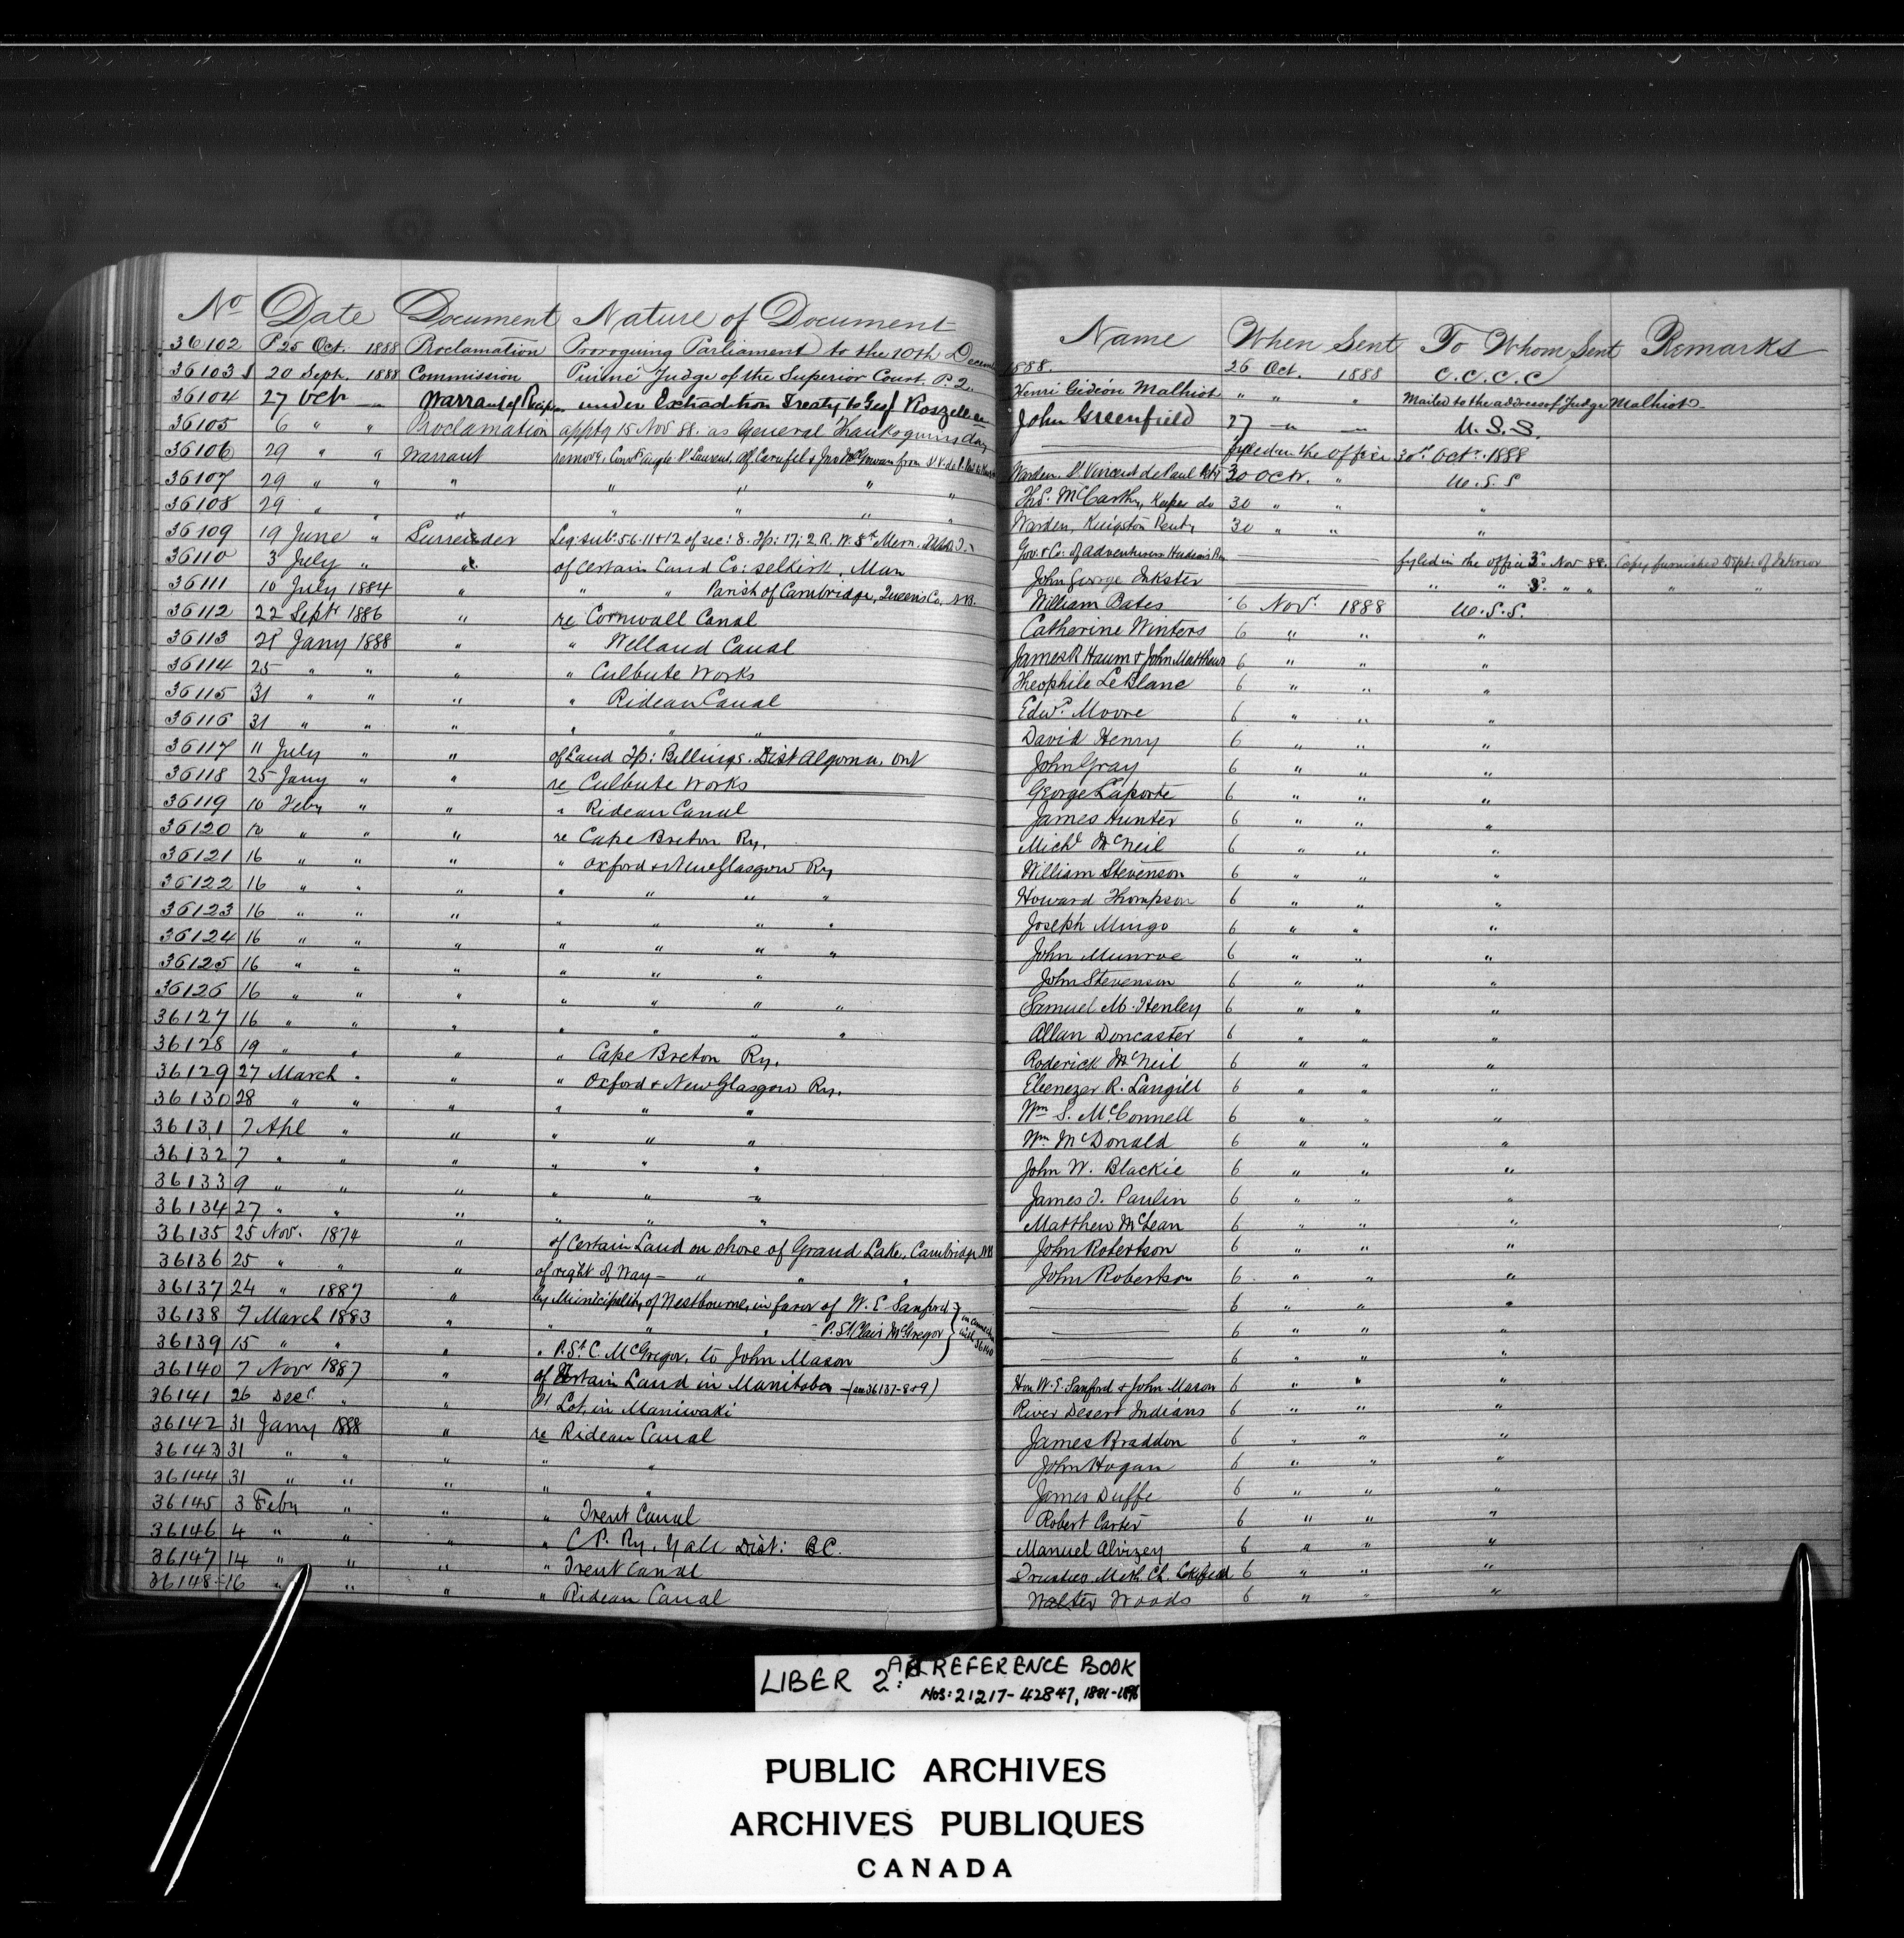 No Date Document Nature of Document Name When Sent To Whom Sent Remarks
36102 P 25 Oct. 1888 Proclamation Proroguing Parliament to the 10th Decem 1888. 26 Oct. 1888 C.C.C.C
36103 20 Sept. 1888 Commission Puisné Judge of the Superior Court, P.Q. Henri Gideón Malhiot " " " Mailed to the address of Judge Malhiot
36104 27 Oct — Warrant of under Extradition Treaty to Geo. Roszell John Greenfield 27 — — U.S.S.
36105 6 " " Proclamation apptg 15 Nov 88. as General Thanksgiving day — fyled in the office 30th Octr. 1888
36106 29 " " Warrant remov'g. Conv'ts St Laurent, Carufel & Jno McGowan from St V. de P. Warden, St Vincent de Paul 30 Octr. " U.S.S
36107 29 " " " " " " " Thos. McCarthy, Keeper do 30 " " "
36108 29 " " " " " " " Warden, Kingston Penty 30 " " "
36109 19 June " Surrender Leg: sub: 5.6.11+12 of sec: 8. Tp: 17; 2 R. W. Mern. Gov. & Co: of Adventurers Hudson's Bay — fyled in the office 3rd Nov 88. Copy furnished Dept. of Interior
36110 3 July " " of certain Land Co: Selkirk, Man John George Inkster — " " 3. " " " "
36111 10 July 1884 " " " Parish of Cambridge, Queens Co, N.B. William Bates 6 Novr 1888 U.S.S.
36112 22 Septr 1886 " re Cornwall Canal Catherine Winters 6 " " "
36113 21 Jany 1888 " " Welland Canal James R Haum & John Matthews 6 " " "
36114 25 " " " " Culbute Works Theophile LeBlanc 6 " " "
36115 31 " " " " Rideau Canal Edwd. Moore 6 " " "
36116 31 " " " " " " David Henry 6 " " "
36117 11 July " " of Land Tp: Billings. Dist Algoma, Ont John Gray 6 " " "
36118 25 Jany " " re Culbute Works George Laporte 6 " " "
36119 10 Feby " " " Rideau Canal James Hunter 6 " " "
36120 10 " " " re Cape Breton Ry, Michl McNeil 6 " " "
36121 16 " " " " Oxford & New Glasgow Ry William Stevenson 6 " " "
36122 16 " " " " " " " Howard Thompson 6 " " "
36123 16 " " " " " " " Joseph Mingo 6 " " "
36124 16 " " " " " " " John Munroe 6 " " "
36125 16 " " " " " " John Stevenson 6 " " "
36126 16 " " " " " " " Samuel M. Henley 6 " " "
36127 16 " " " " " " " Allan Doncaster 6 " " "
36128 19 " " " " Cape Breton Ry. Roderick McNeil 6 " " "
36129 27 March " " " Oxford & New Glasgow Ry. Ebenezer R. Langill 6 " " "
36130 28 " " " " " " Wm S. McConnell 6 " " "
36131 7 Apl " " " " " Wm. McDonald 6 " " "
36132 7 " " " " " " John W. Blackie 6 " " "
36133 9 " " " " " " James J. Paulin 6 " " "
36134 27 " " " " " " Matthew McLean 6 " " "
36135 25 Nov. 1874 " of Certain Land on shore of Grand Lake, Cambridge NB John Robertson 6 " " "
36136 25 " " " of right of Way — " " " John Robertson 6 " " "
36137 24 " 1887 " by Municipality of Westbourne, in favor of W. E Sanford — 6 " " "
36138 7 March 1883 " " " " P. St Clair McGregor } in connection with 36140 — 6 " " "
36139 15 " " " " P. St. C. McGregor, to John Mason — 6 " " "
36140 7 Nov 1887 " of Certain Land in Manitoba — (see 36137-8+9) Hon W. E. Sanford & John Mason 6 " " "
36141 26 Decr. " " of Lot, in Maniwaki River Desert Indians 6 " " "
36142 31 Jany 1888 " re Rideau Canal James Braddon 6 " " "
36143 31 " " " " " John Hogan 6 " " "
36144 31 " " " " " James Duffe 6 " " "
36145 3 Feby " " " Trent Canal Robert Carter 6 " " "
36146 4 " " " " C P. Ry. Yale Dist: B.C. Manuel Alvizey 6 " " "
36147 14 " " " " Trent Canal Trustees Meth. Ch. Lakefield 6 " " "
36148 16 " " " " Rideau Canal Walter Woods 6 " " "
LIBER 2: REFERENCE BOOK
NOS: 21217-42847, 1881-1896
PUBLIC ARCHIVES
ARCHIVES PUBLIQUES
CANADA